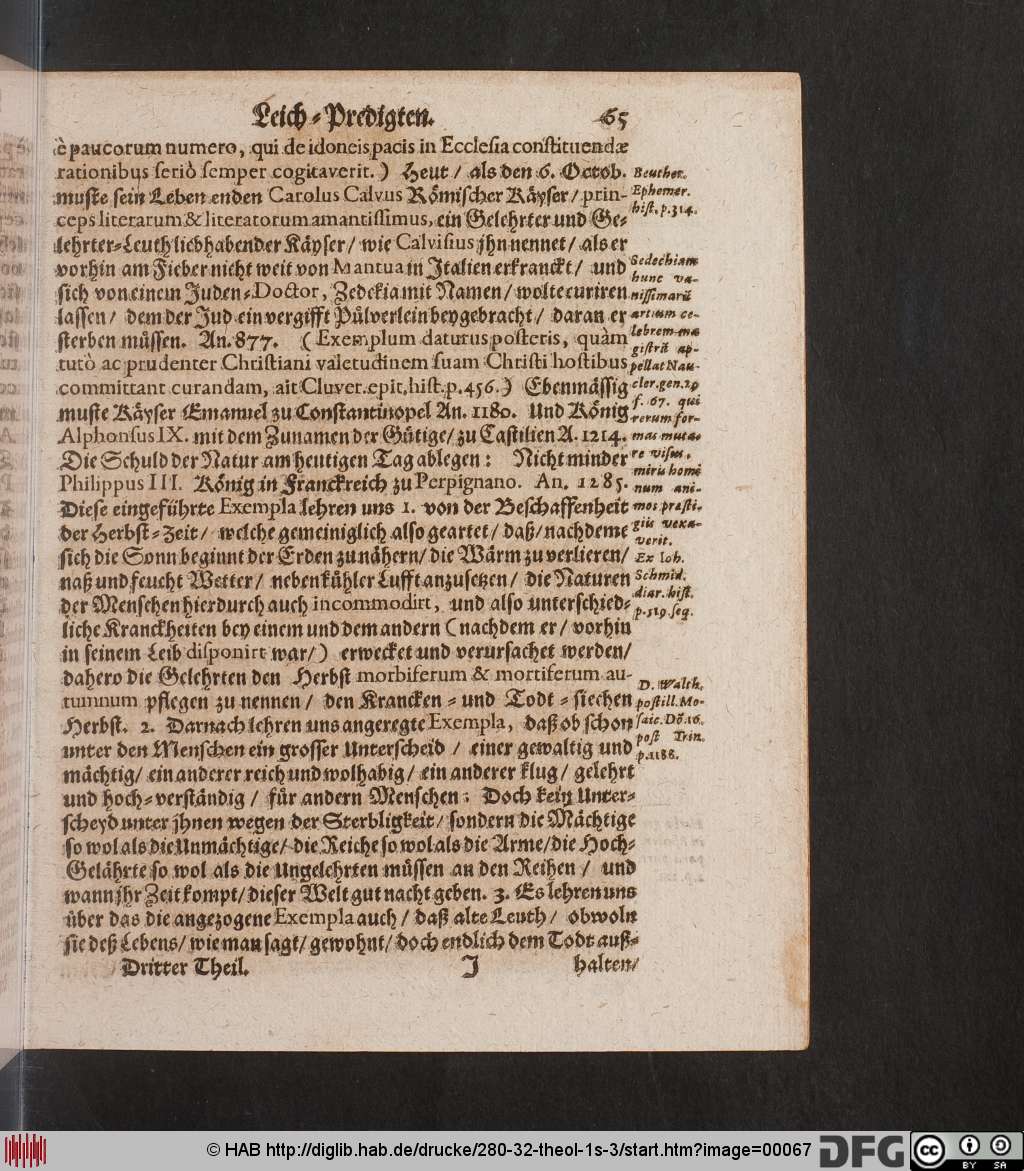 Leich-Predigten. 65
è paucorum numero, qui de idoneis pacis in Ecclesia constituendæ
rationibus seriò semper cogitaverit.) Heut / als den 6. Octob.
muste sein Leben enden Carolus Calvus Römischer Käyser / prin-
ceps literarum & literatorum amantissimus, ein Gelehrter und Ge-
lehrter-Leuth liebhabender Käyser / wie Calvisius jhn nennet / als er
vorhin am Fieber nicht weit von Mantua in Italien erkranckt / und
sich von einem Juden-Doctor, Zedekia mit Namen / wolte curiren
lassen / dem der Jud ein vergifft Pülverlein beygebracht / daran er
sterben müssen. An. 877. (Exemplum daturus posteris, quàm
tutò ac prudenter Christiani valetudinem suam Christi hostibus
committant curandam, ait Cluver. epit. hist. p. 456.) Ebenmässig
muste Käyser Emanuel zu Constantinopel An. 1180. Und König
Alphonsus IX. mit dem Zunamen der Gütige / zu Castilien A. 1214.
Die Schuld der Natur am heutigen Tag ablegen: Nicht minder
Philippus III. König in Franckreich zu Perpignano. An. 1285.
Diese eingeführte Exempla lehren uns 1. von der Beschaffenheit
der Herbst-Zeit / welche gemeiniglich also geartet / daß / nachdeme
sich die Sonn beginnt der Erden zu nähern / die Wärm zu verlieren /
naß und feucht Wetter / neben kühler Lufft anzusetzen / die Naturen
der Menschen hierdurch auch incommodirt, und also unterschied-
liche Kranckheiten bey einem und dem andern (nachdem er / vorhin
in seinem Leib disponirt war /) erwecket und verursachet werden /
dahero die Gelehrten den Herbst morbiferum & mortiferum au-
tumnum pflegen zu nennen / den Krancken- und Todt-siechen
Herbst. 2. Darnach lehren uns angeregte Exempla, daß ob schon
unter den Menschen ein grosser Unterscheid / einer gewaltig und
mächtig / ein anderer reich und wolhabig / ein anderer klug / gelehrt
und hoch-verständig / für andern Menschen: Doch kein Unter-
scheyd unter jhnen wegen der Sterbligkeit / sondern die Mächtige
so wol als die Unmächtige / die Reiche so wol als die Arme / die Hoch-
Gelährte so wol als die Ungelehrten müssen an den Reihen / und
wann jhr Zeit kompt / dieser Welt gut nacht geben. 3. Es lehren uns
über das die angezogene Exempla auch / daß alte Leuth / obwoln
sie deß Lebens / wie man sagt / gewohnt / doch endlich dem Todt auß-
Dritter Theil. J halten /
Beuther.
Ephemer.
hist. p. 314.
Sedechiam
hunc va-
nissimarũ
artium ce-
lebrem ma
gistrũ ap-
pellat Nau-
cler. gen. 29
f. 67. qui
rerum for-
mas muta-
re visus,
mirũ homi
num ani-
mos præsti-
giis vexa-
verit.
Ex Ioh.
Schmid.
diar. hist.
p. 519. seq.
D. Walth.
postill. Mo-
saic. Dõ. 16.
post Trin.
p. 1188.
© HAB http://diglib.hab.de/drucke/280-32-theol-1s-3/start.htm?image=00067
DFG
cc
BY SA